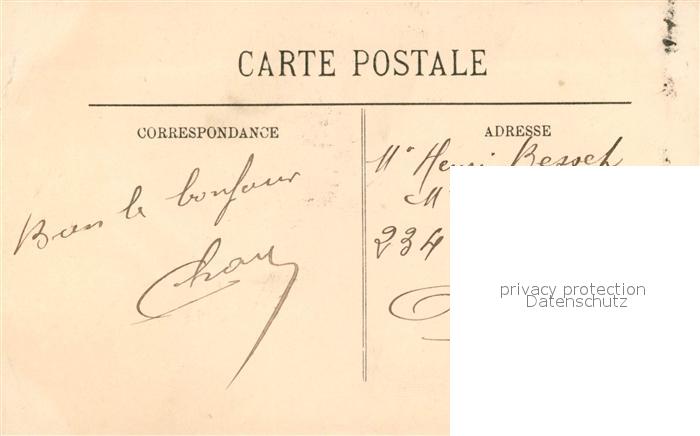 CARTE POSTALE
CORRESPONDANCE
ADRESSE
Bien le bonjour
Mr Henri
M
234
privacy protection
Datenschutz